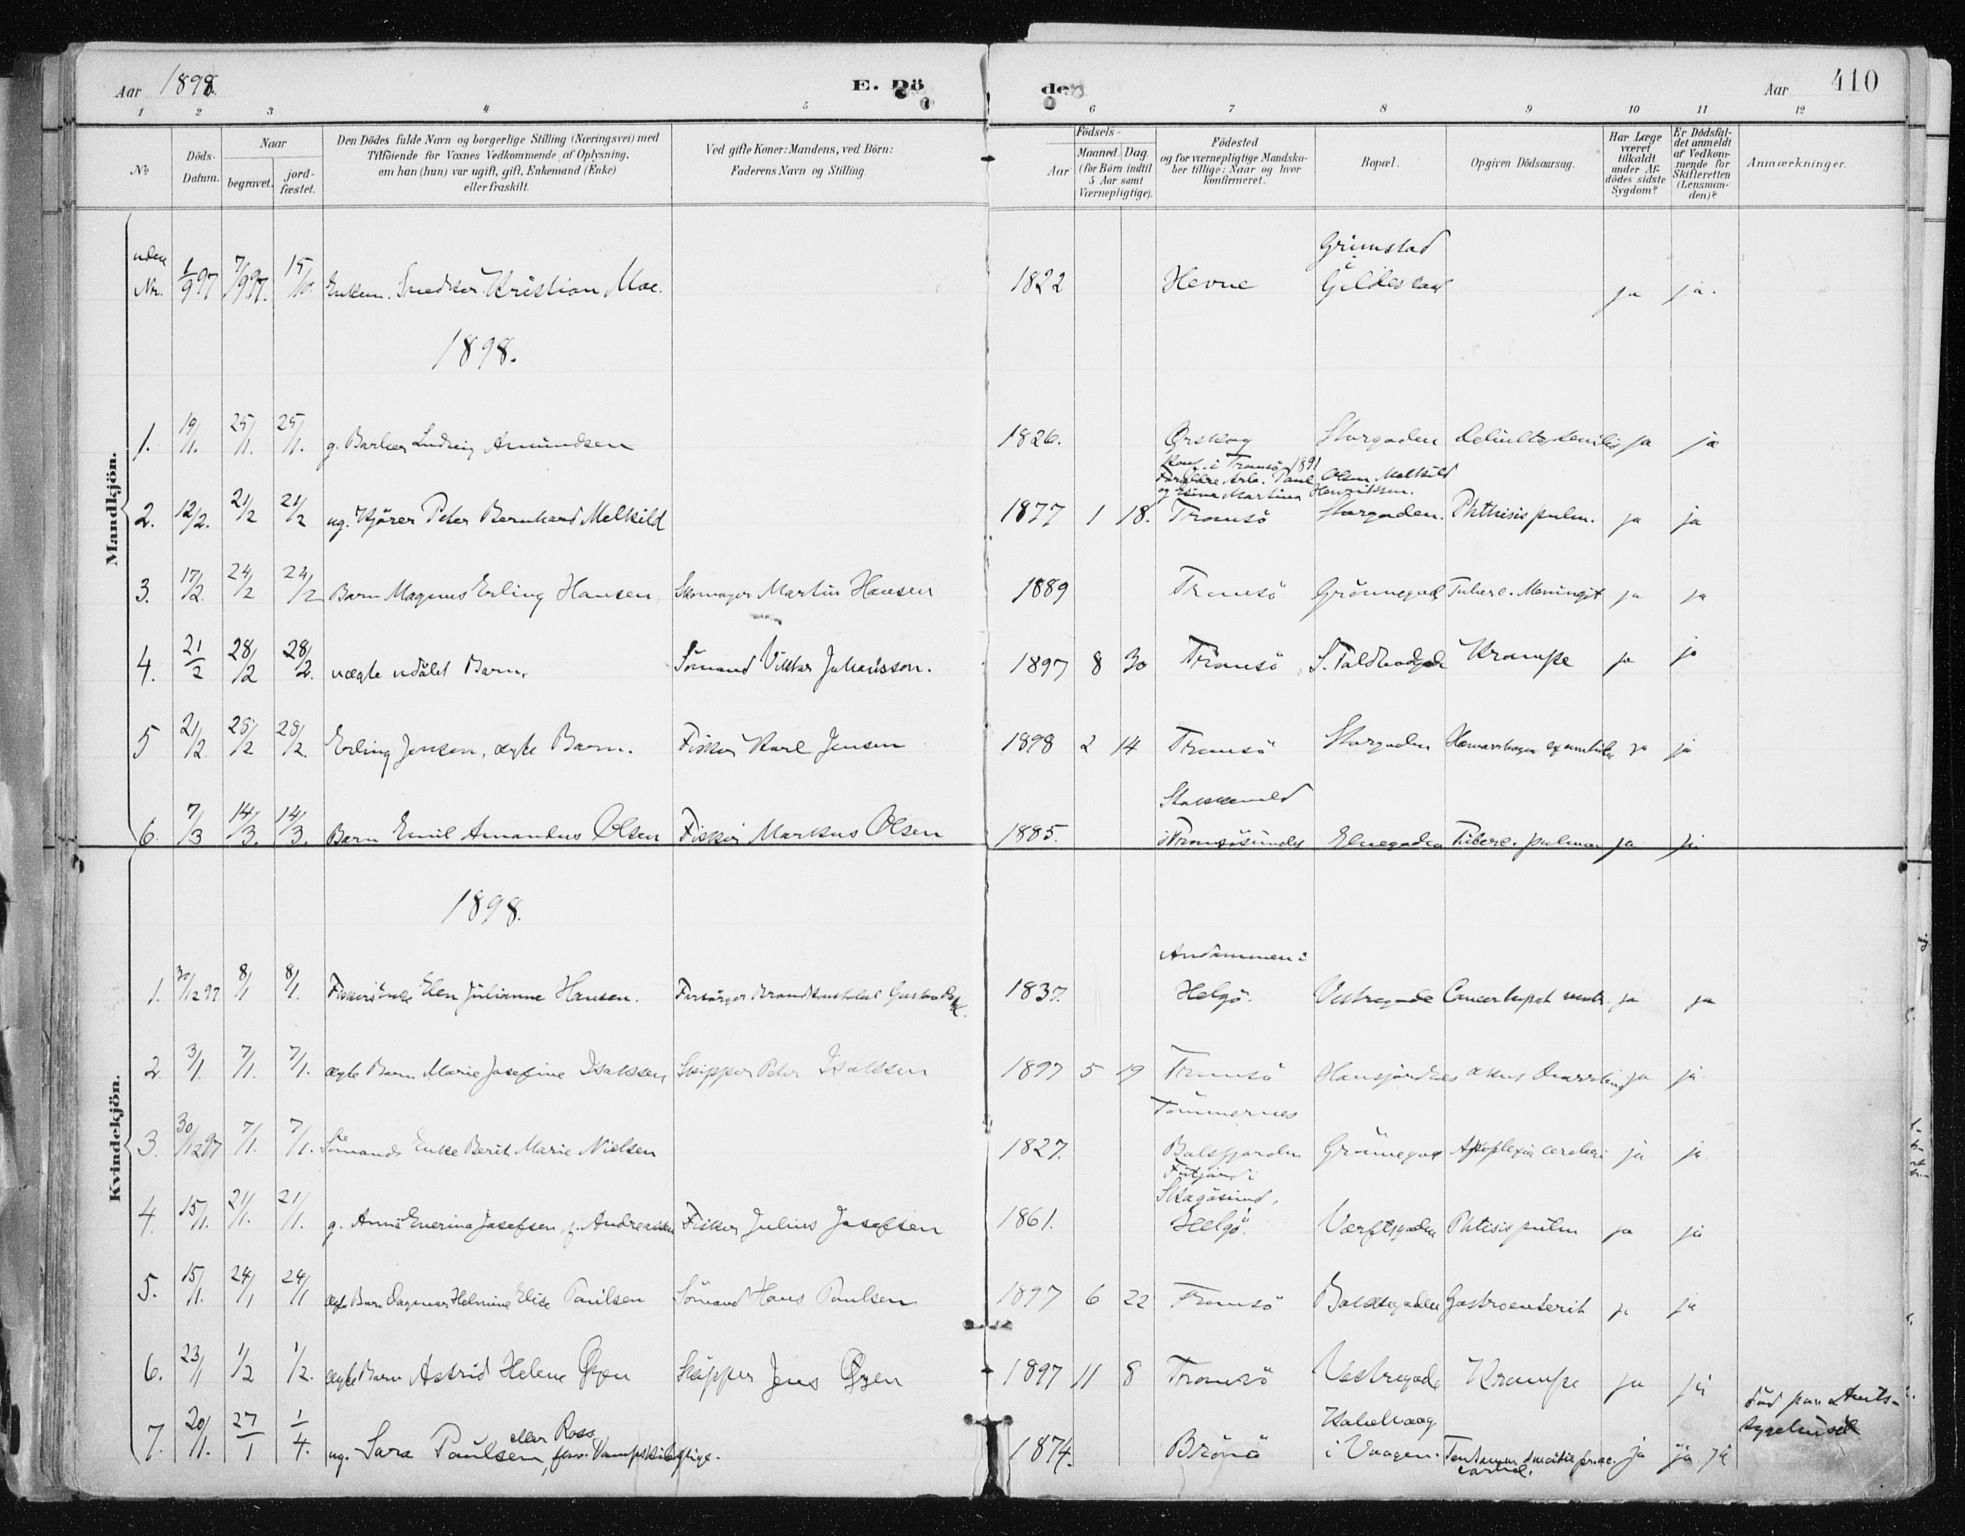 Aar 1898.
E. Döde.
Aar
410
1 2 3 4 5 6 7 8 9 10 11 12
No
Döds-Datum.
Naar
begravet.
jord-fæstet.
Den Dödes fulde Navn og borgerlige Stilling (Næringsvei) med
Tilföiende for Voxnes Vedkommende af Oplysning,
om han (hun) var ugift, gift, Enkemand (Enke)
eller fraskilt.
Ved gifte Koner: Mandens, ved Börn:
Faderens Navn og Stilling.
Födsels-
Aar
Maaned Dag
(for Börn indtil
5 Aar samt
Værnepligtige).
Födested
og for værnepligtige Mandska-
ber tillige: Naar og hvor
konfirmeret.
Bopæl.
Opgiven Dödsaarsag.
Har Læge
været
tilkaldt
under Af-
dödes sidste
Sygdom?
Er Dödsfal-
det anmeldt
af Vedkom-
mende for
Skifteretten
(Lensman-
den)?
Anmærkninger.
Mandkjön.
uden Nr. 1/9 97 7/9 97. 15/10. Enkem. Snedker Kristian Moe. 1822 Hevne Grimstad i Gildeskaal ja ja.
1898.
1. 19/1. 25/1. 25/1. g. Barber Ludvig Amundsen 1826. Ørskog Storgaden debilitas senilis ja ja
Konf. i Tromsö 1891
Forældre Arb. Paul Olsen Melkild
og Martina Henriksen.
2. 12/2. 21/2 21/2 ug. Kjörer Peter Bernhard Melkild 1877 1 18. Tromsö Storgaden. Phthisis pulm. ja ja
3. 17/2. 24/2 24/2 Barn Magnus Erling Hansen Skomager Martin Hansen 1889 Tromsö Grönnegad Tuberc. Meningit ja ja
4. 21/2 28/2 28/2. uægte udöbt Barn. Sömand Viktor Johansson. 1897 8 30 Tromsö S. Toldbodgade Krampe ja ja
5 21/2. 28/2 28/2. Erling Jensen, ægte Barn. Fisker Karl Jensen 1898 2 14 Tromsö Storgaden Hæmorrhagia ex umbilic ja ja
6. 7/3 14/3. 14/3. Barn Emil Amandus Olsen Fisker Markus Olsen 1885. Stakkevold i Tromsösundet Elvegaden Tuberc. pulmon ja ja
Kvindekjön.
1898.
1. 30/12 97 8/1 8/1. Elen Julianne Hansen. Forsörger Brandkonstabel Gustav 1837. Andammen i Helgö. Vestregade Cancer hepat ventr. ja ja
2 3/1. 7/1. 7/1. ægte Barn Marie Josefine Isaksen, Skipper Peter Isaksen 1897 5 19 Tromsö Hansjordnes akut ja ja
3. 30/12 97 7/1. 7/1. Sömands Enke Berit Marie Nielsen 1827. Tömmernes Balsfjorden Grönnegad Apoplexia cerebri ja ja
4. 15/1. 21/1. 21/1. g. Anna Enerina Josefsen, f. Andreassen Fisker Julius Josefsen 1861. i Skagösund, Helgö. Værftsgaden Phtisis pulm ja ja
5. 15/1. 24/1 24/1 ægte Barn Dagmar Helmine Elise Paulsen Sömand Hans Paulsen 1897 6 22 Tromsö Bakkegaden Gastroenterit ja ja
6. 23/1 1/2 1/2. ægte Barn Astrid Helene Øyen Skipper Jens Øyen 1897 11 8 Tromsö Vestregade Krampe ja ja
7. 20/1. 27/1 1/4. ug. Sara Paulsen eller Ross, 1874. Brönö Kabelvaag i Vaagen. ja ja ja
Död paa Amts-
sygehuset